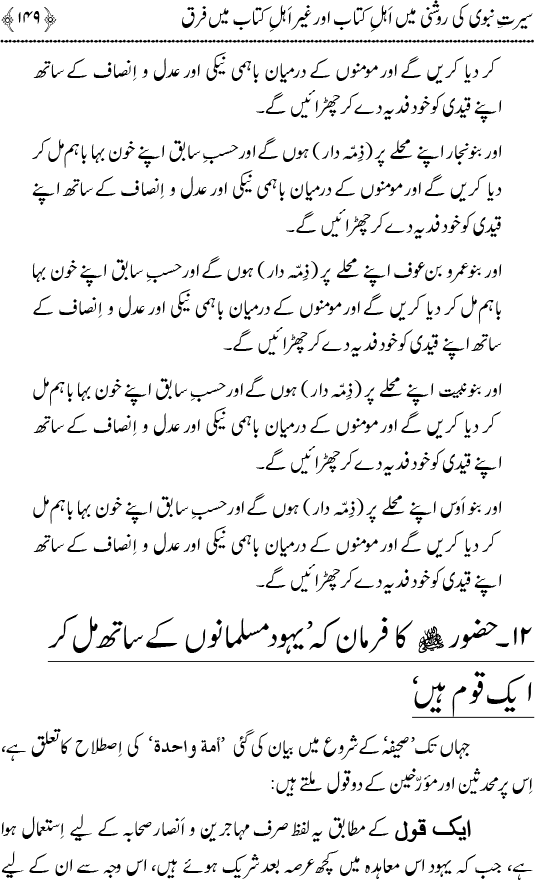 سیرتِ نبوی کی روشنی میں اَہلِ کتاب اور غیر اَہلِ کتاب میں فرق ﴿۱۴۹﴾
کر دیا کریں گے اور مومنوں کے درمیان باہمی نیکی اور عدل و اِنصاف کے ساتھ
اپنے قیدی کو خود فدیہ دے کر چھڑائیں گے۔
اور بنو نجار اپنے محلے پر (ذِمّہ دار) ہوں گے اور حسبِ سابق اپنے خون بہا باہم مل کر
دیا کریں گے اور مومنوں کے درمیان باہمی نیکی اور عدل و اِنصاف کے ساتھ اپنے
قیدی کو خود فدیہ دے کر چھڑائیں گے۔
اور بنو عمرو بن عوف اپنے محلے پر (ذِمّہ دار) ہوں گے اور حسبِ سابق اپنے خون بہا
باہم مل کر دیا کریں گے اور مومنوں کے درمیان باہمی نیکی اور عدل و اِنصاف کے
ساتھ اپنے قیدی کو خود فدیہ دے کر چھڑائیں گے۔
اور بنو نبیت اپنے محلے پر (ذِمّہ دار) ہوں گے اور حسبِ سابق اپنے خون بہا باہم مل
کر دیا کریں گے اور مومنوں کے درمیان باہمی نیکی اور عدل و اِنصاف کے ساتھ
اپنے قیدی کو خود فدیہ دے کر چھڑائیں گے۔
اور بنو اَوس اپنے محلے پر (ذِمّہ دار) ہوں گے اور حسبِ سابق اپنے خون بہا باہم مل
کر دیا کریں گے اور مومنوں کے درمیان باہمی نیکی اور عدل و اِنصاف کے ساتھ
اپنے قیدی کو خود فدیہ دے کر چھڑائیں گے۔
۱۲۔ حضور ﷺ کا فرمان کہ ’یہود مسلمانوں کے ساتھ مل کر
ایک قوم ہیں‘
جہاں تک ’صحیفہ‘ کے شروع میں بیان کی گئی ’أمة واحدة‘ کی اِصطلاح کا تعلق ہے،
اِس پر محدثین اور مؤرّخین کے دو قول ملتے ہیں:
ایک قول کے مطابق یہ لفظ صرف مہاجرین و اَنصار صحابہ کے لیے اِستعمال ہوا
ہے، جب کہ یہود اس معاہدہ میں کچھ عرصہ بعد شریک ہوئے ہیں، اس وجہ سے ان کے لیے